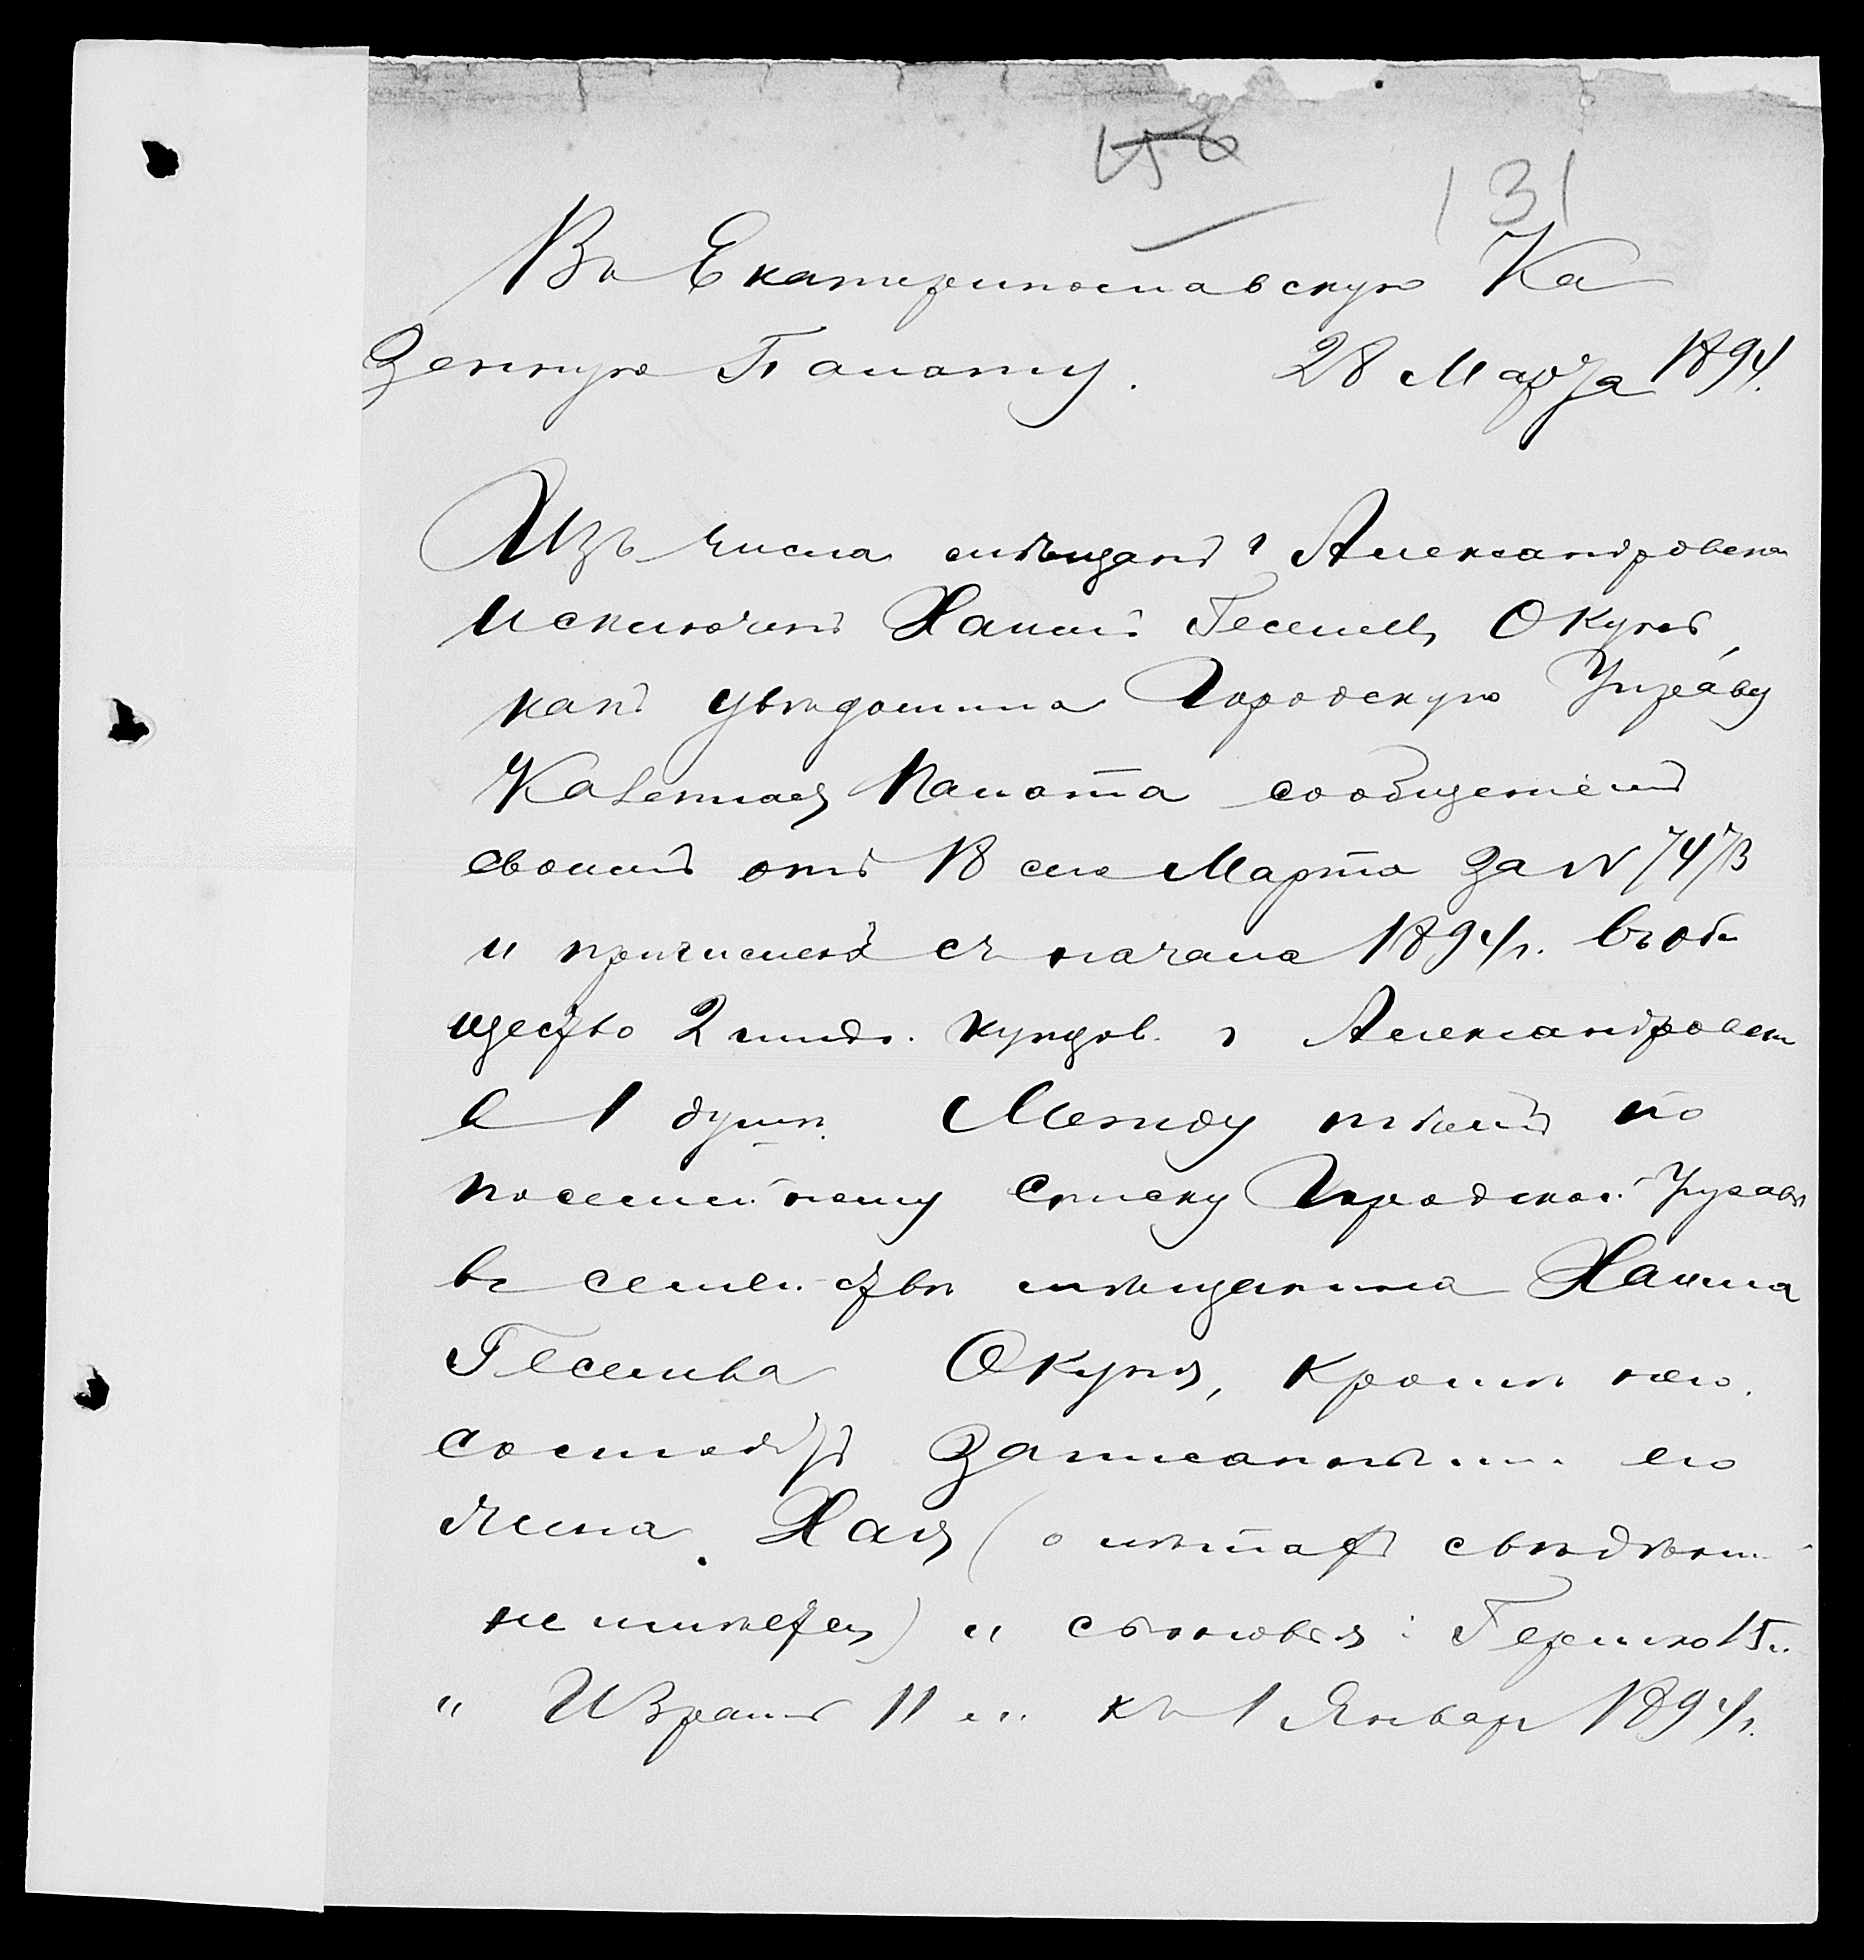 156
131
Въ Екатеринославскую Ка
зенную Палату. 28 Марта 1894.
Изъ числа мѣщанъ г Александровска
исключенъ Хаимъ Геселевъ Окунь,
какъ увѣдомила Городскую Управу
Казенная Палата сообщеніемъ
своимъ отъ 18 сего Марта за N 7473
и причисленъ съ начала 1894 г. въ об
щество 2 гильд. купцов. г Александровска
въ 1 душѣ. Между тѣмъ по
посемейному списку Городской Управы
въ семействѣ мѣщанина Хаима
Геселева Окуня, кромѣ него.
состоятъ записанными его
жена Хая (о лѣтахъ свѣдѣній
не имѣется) и сыновья: Гершко 15 л.
и Израиль 11 л. къ 1 Январ 1894 г.